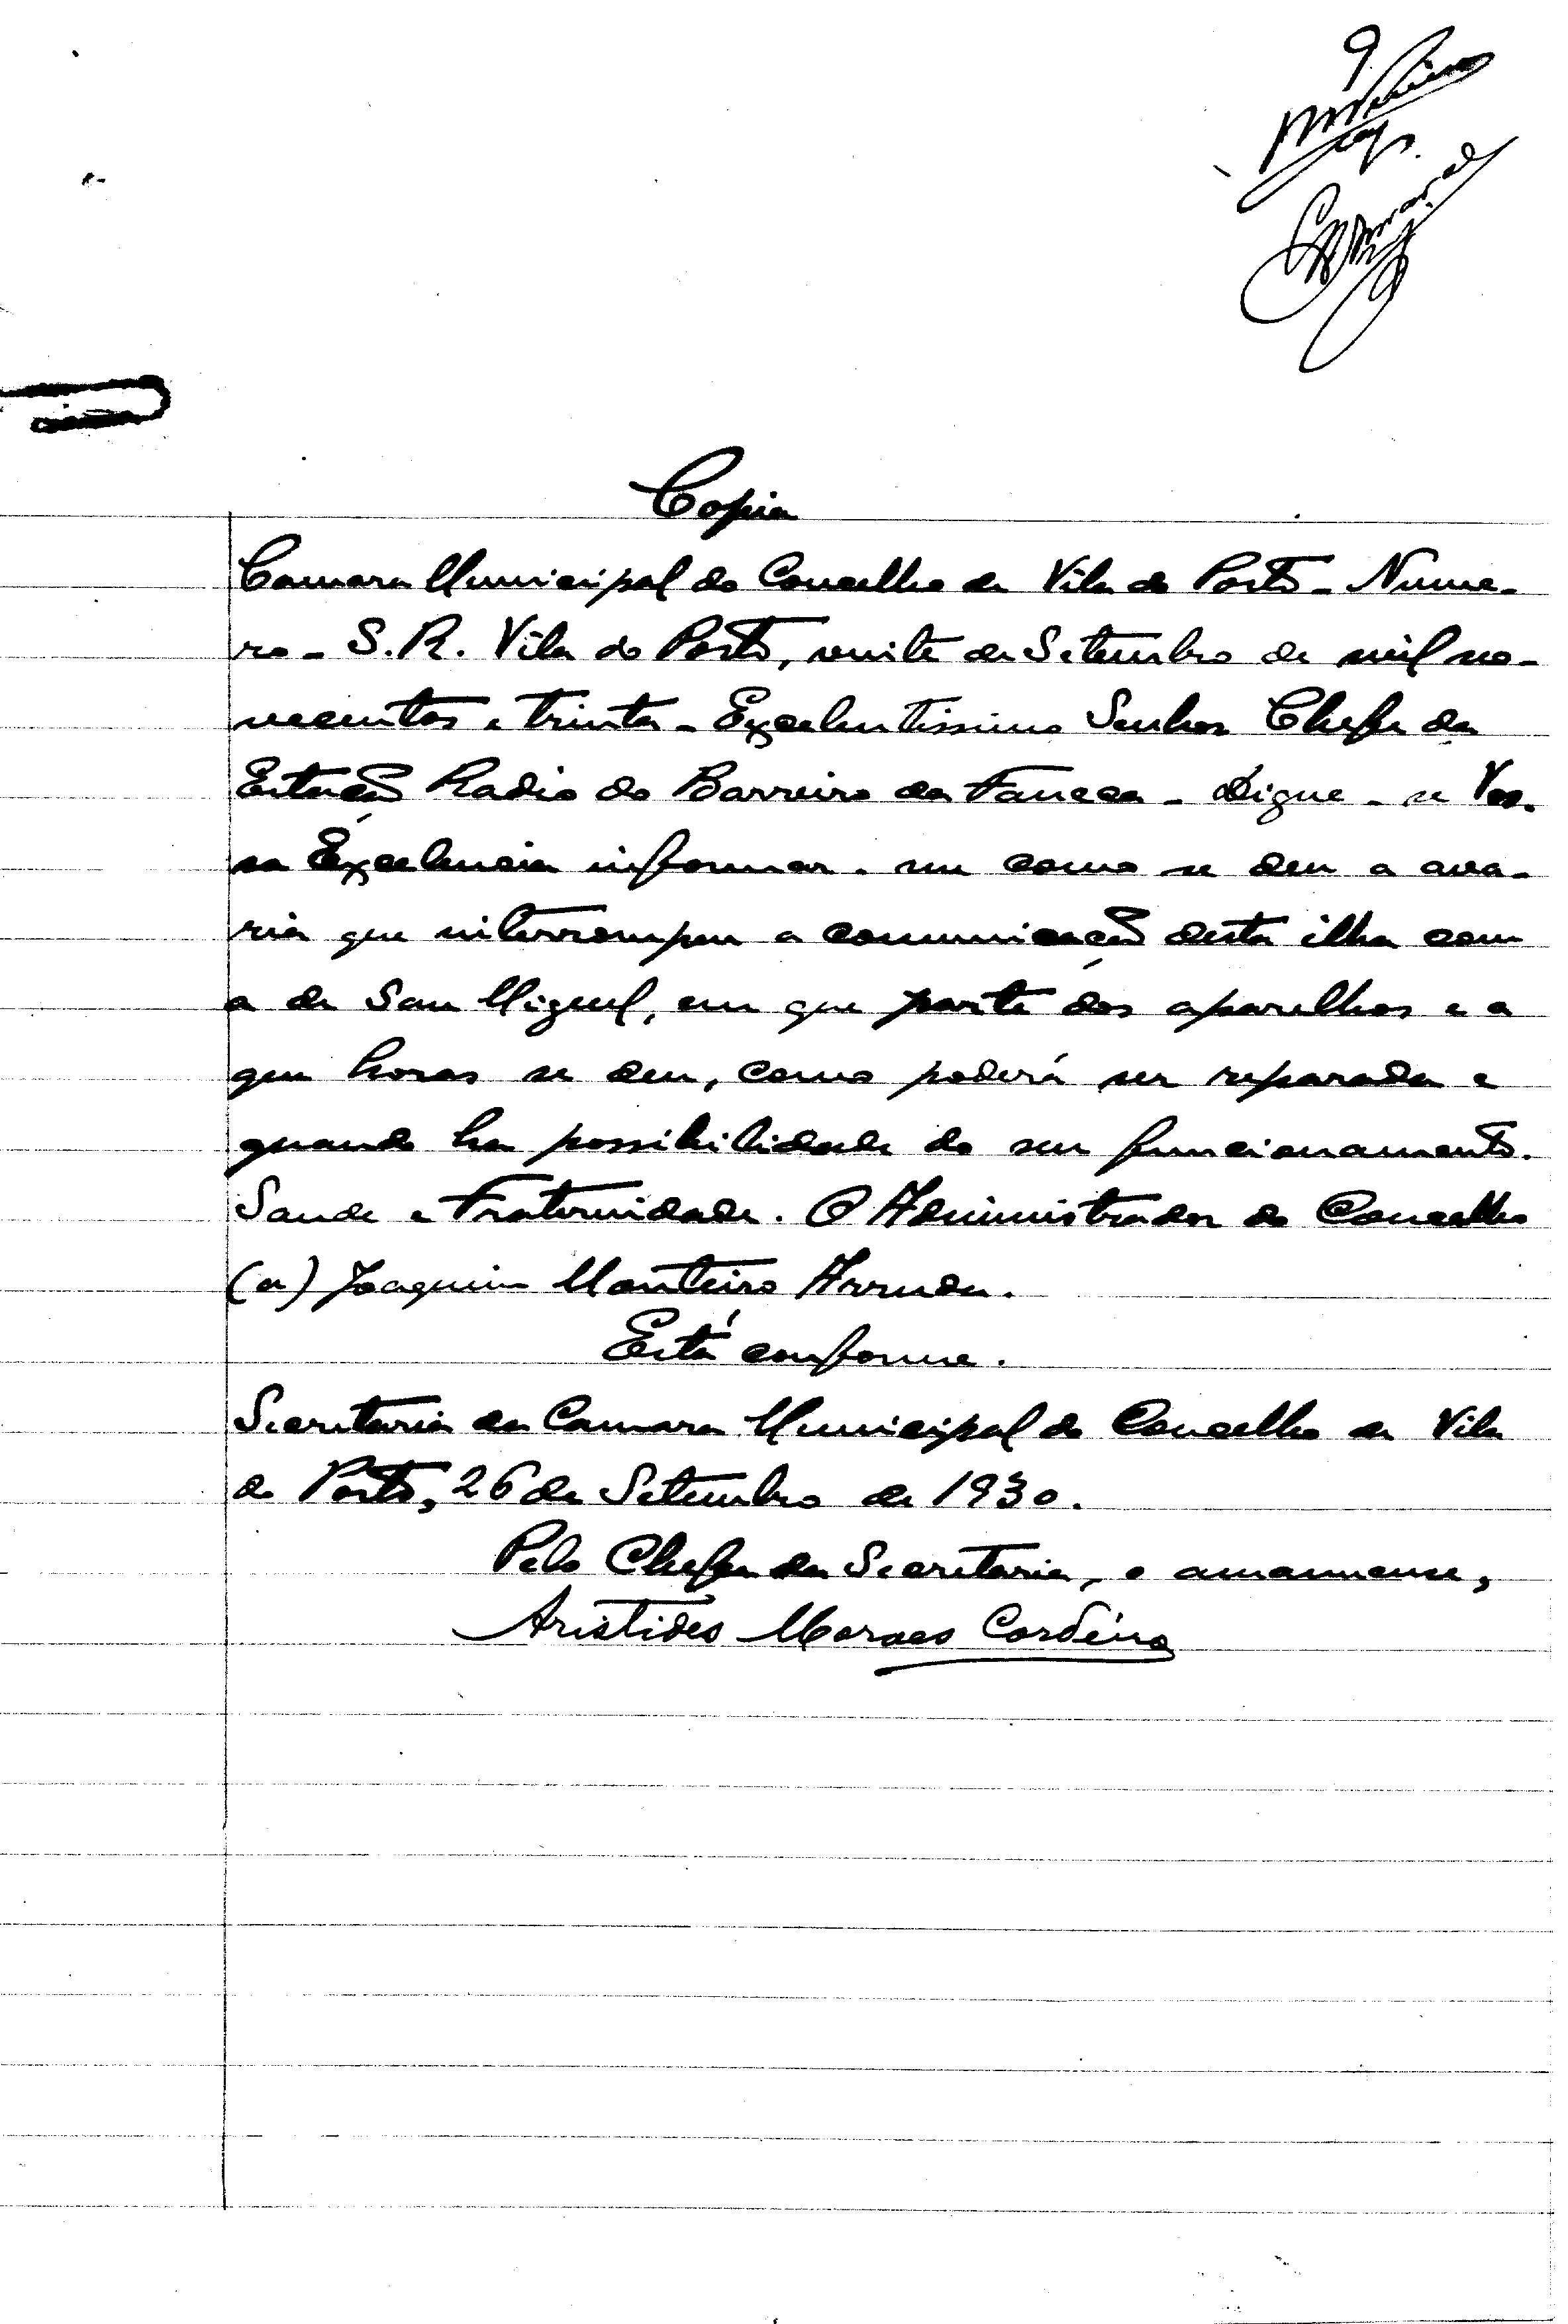 9
Copia
Camara Municipal do Concelho de Vila do Porto - Nume-
ro - S.R. Vila do Porto, vinte de Setembro de mil no-
vecentos e trinta - Excelentissimo Senhor Chefe da
Estação Radio do Barreiro da Faneca - Digne-se Vos-
sa Excelencia informar-me como se deu a ava-
ria que interrompeu a comunicação desta ilha com
a de San Miguel, em que parte dos aparelhos e a
que horas se deu, como poderá ser reparada e
quando ha possibilidade do seu funcionamento.
Saude e Fraternidade. O Administrador do Concelho
(a) Joaquim Monteiro Arruda.
Está conforme.
Secretaria da Camara Municipal do Concelho de Vila
do Porto, 26 de Setembro de 1930.
Pelo Chefe da Secretaria, o amanuense,
Aristides Moraes Cordeiro